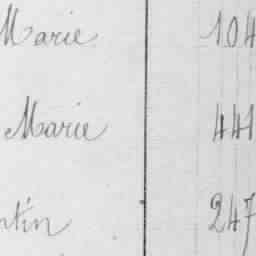 Marie 104
Marie 441
ntin 247